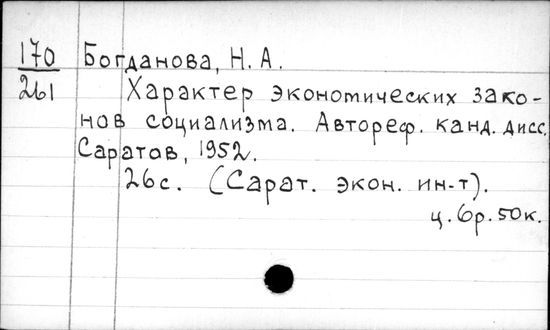 170 Богданова, Н. А.
261 Характер экономических зако-
нов социализма. Автореф. канд. дисс.
Саратов, 1952.
26с. (Сарат. экон. ин-т).
ц. 6р. 50к.